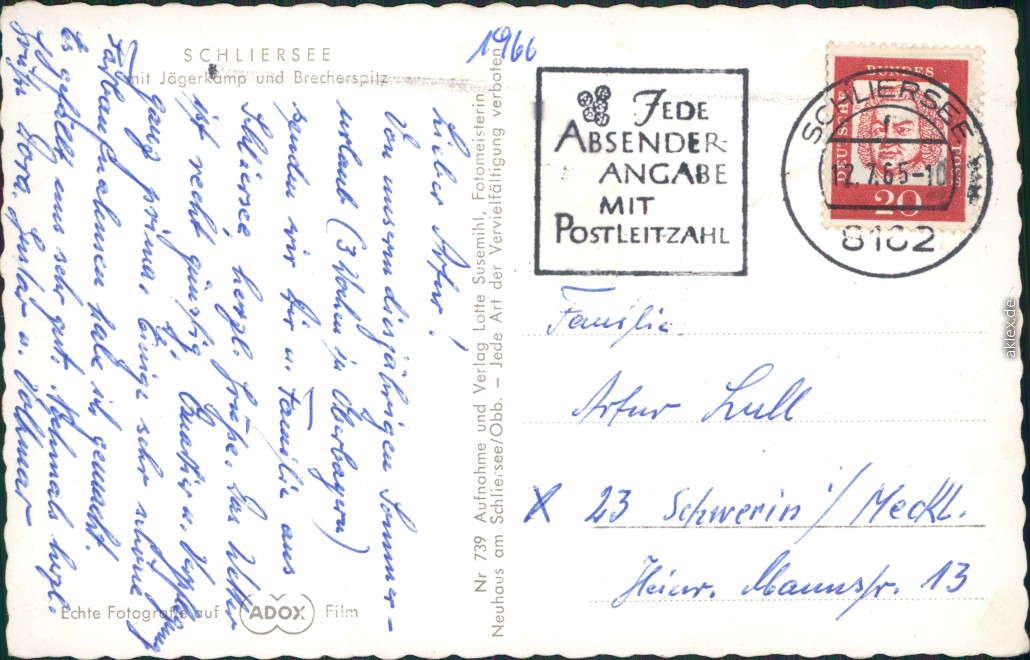 SCHLIERSEE
mit Jägerkamp und Brecherspitz
1966
JEDE
ABSENDER-
ANGABE
MIT
POSTLEITZAHL
DEUTSCHE BUNDESPOST
20
SCHLIERSEE
f
12.7.65-10
8162
Lieber Artur!
Von unserm diesjährigen Sommer-
urlaub (3 Wochen in Oberbayern)
senden wir Dir u. Familie aus
Schliersee herzl. Grüße. Das Wetter
ist recht günstig, Quartier u. Verpflegung
ganz prima. Einige sehr schöne
Farbaufnahmen habe ich gemacht.
Es gefällt uns sehr gut. Nochmals herzl.
Grüße Dora, Gustav u. Volkmar
Nr 739 Aufnahme und Verlag Lotte Susemihl, Fotomeisterin
Neuhaus am Schliersee/Obb. – Jede Art der Vervielfältigung verboten
Familie
Artur Lull
X 23 Schwerin/Meckl.
Heinr. Mannstr. 13
Echte Fotografie auf ADOX Film
aklex.de